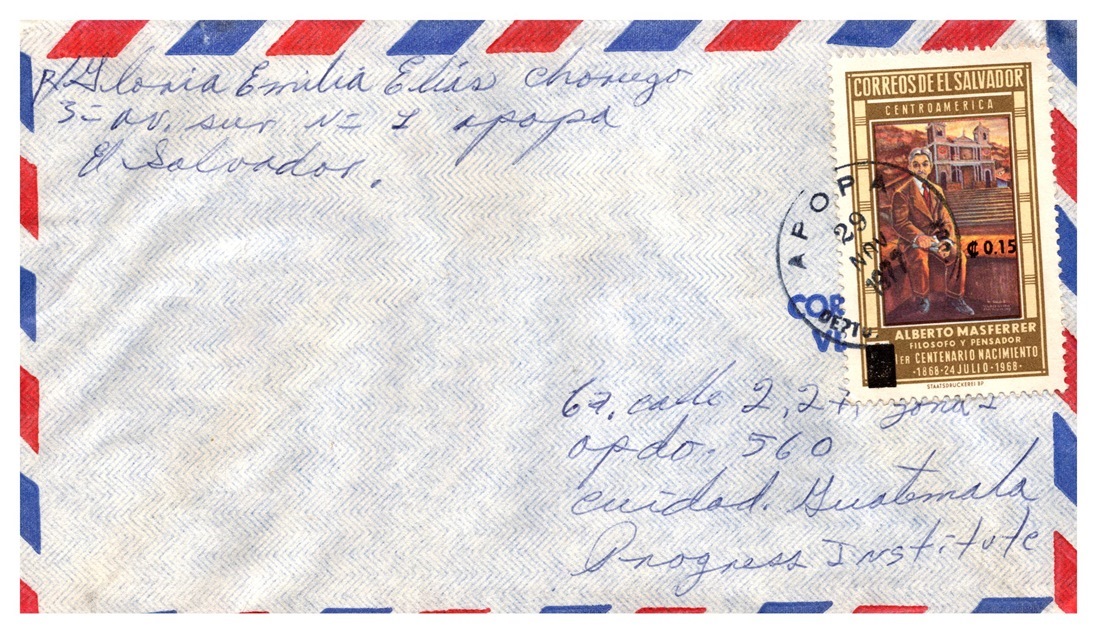 R/ Gloria Emilia Elías
3= av. sur N= 1 apopa
El Salvador.
CORREOS DE EL SALVADOR
CENTROAMERICA
₡ 0.15
ALBERTO MASFERRER
FILOSOFO Y PENSADOR
1ER CENTENARIO NACIMIENTO
·1868·24 JULIO·1968·
STAATSDRUCKEREI
APOPA
29
NOV
1977
DEPTO
COR
VI
6a. calle 2,27, zona 1
apdo. 560
cuidad. Guatemala
Progress Institute